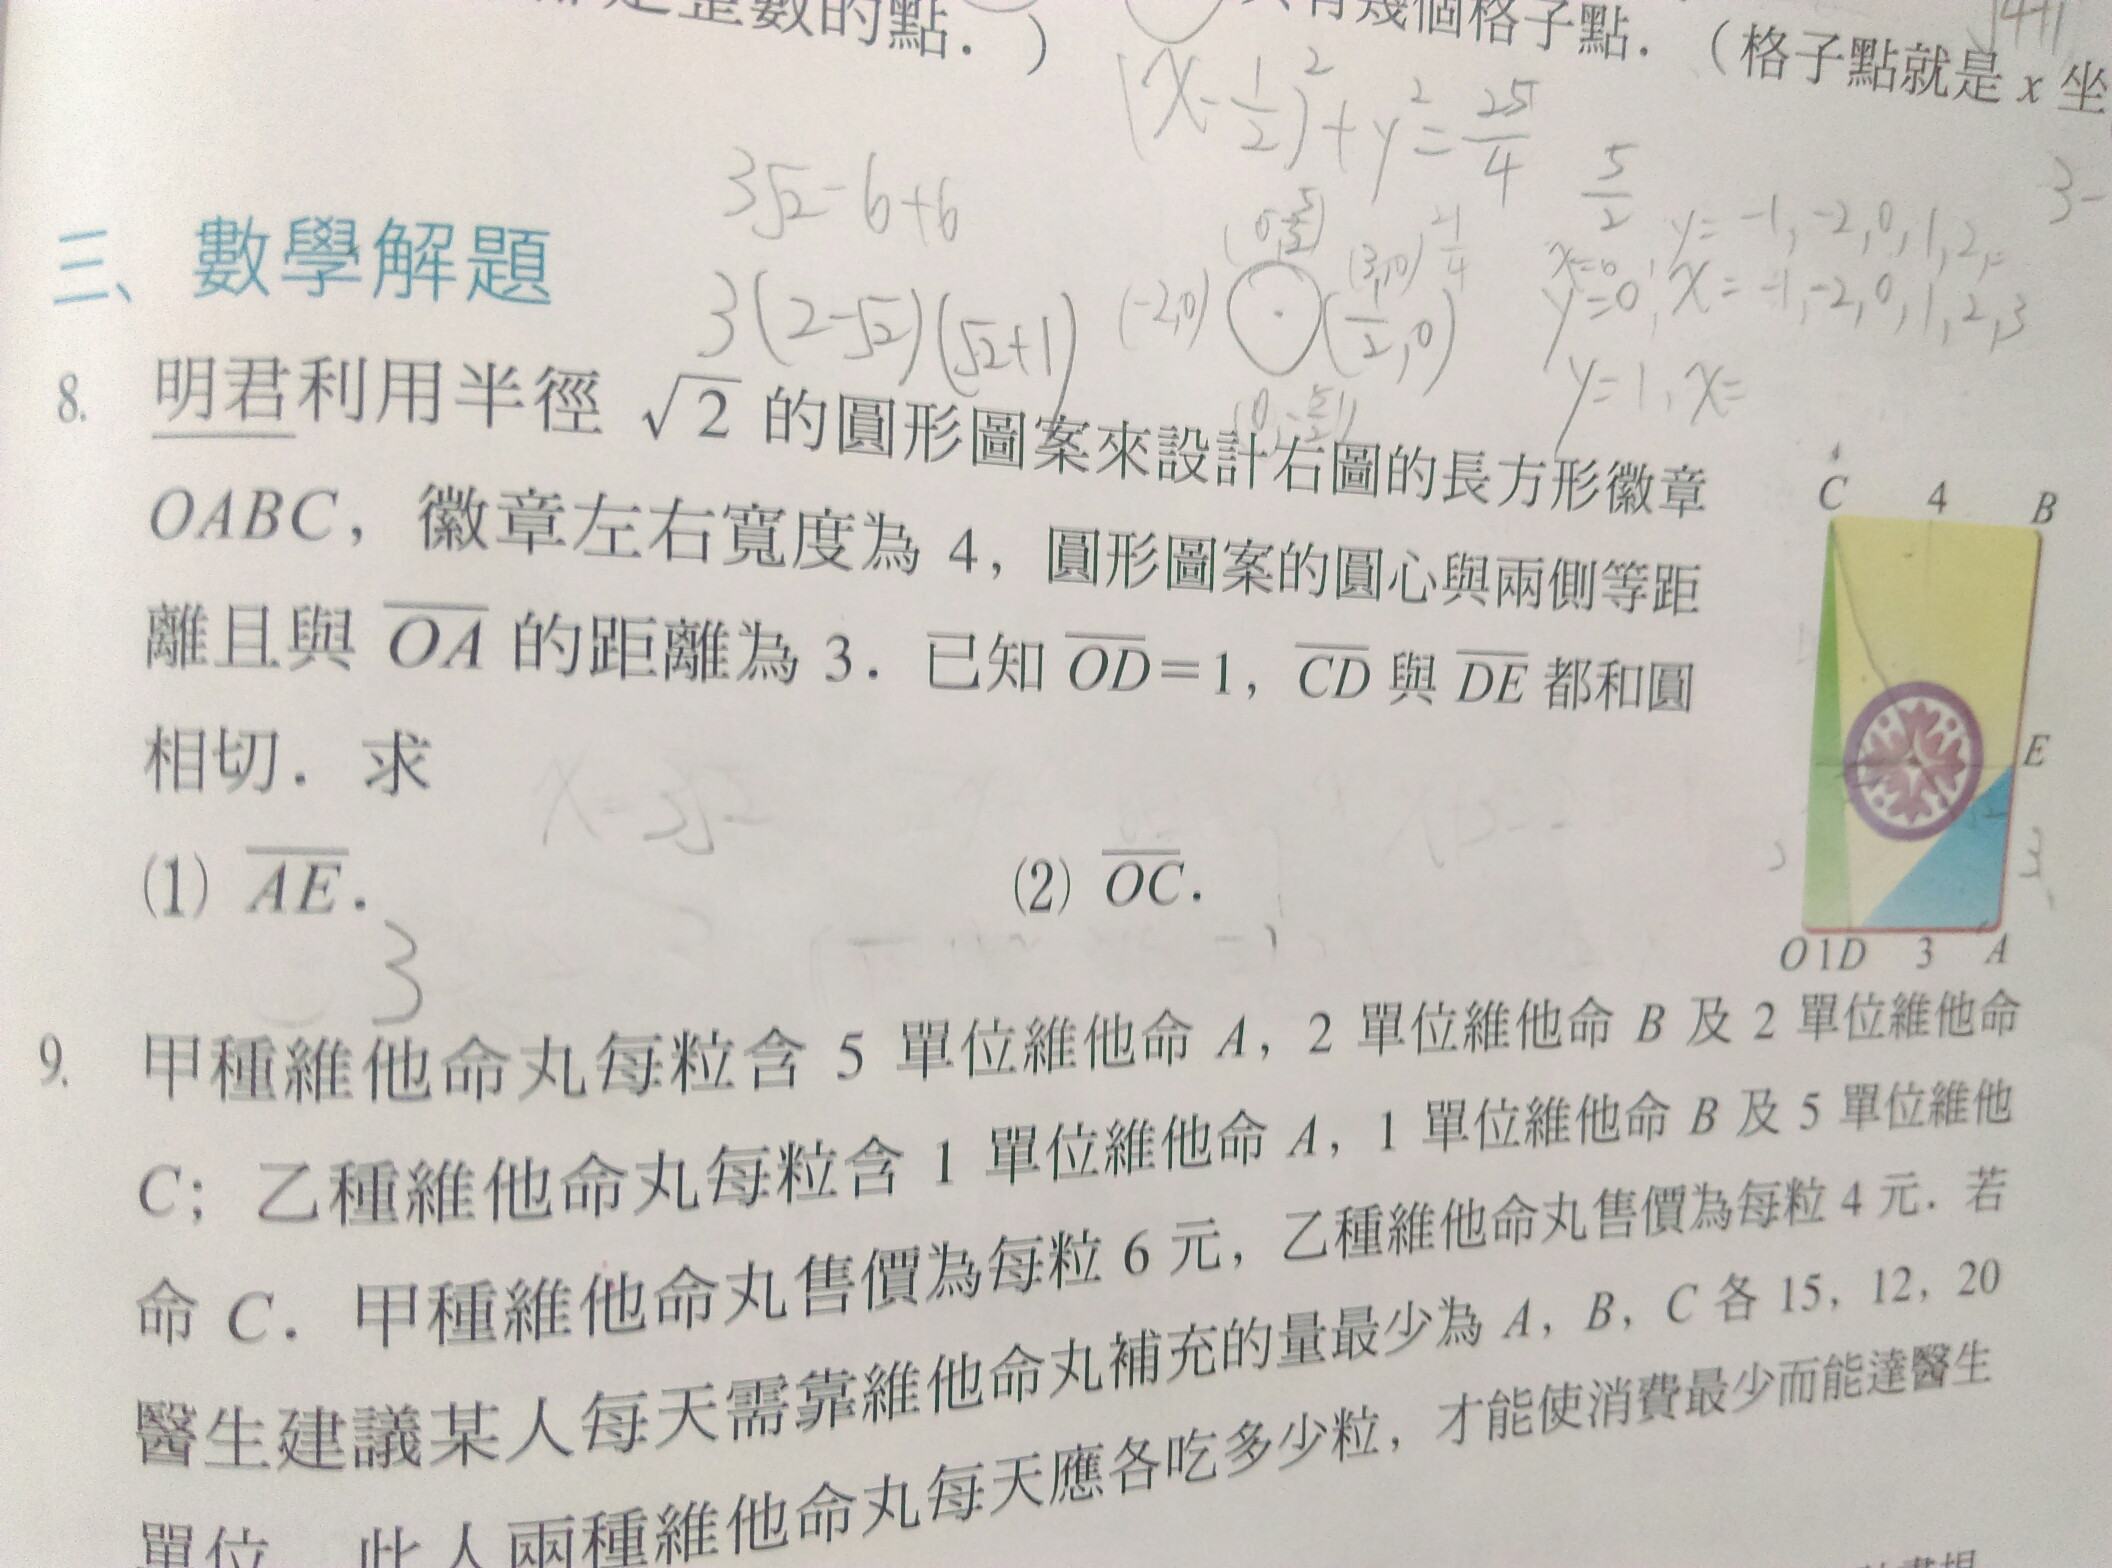 整數的點．）
有幾個格子點．（格子點就是 x 坐
(x-1/2)²+y²=25/4
5/2
3-
3√2-6+6
三、數學解題
y=-1,-2,0,1,2,
3(2-√2)(√2+1)
(-2,0)
(3,0)
(1/2,0)
x=0
y=0, x=-1,-2,0,1,2,3
y=1, x=
8. 明君利用半徑 √2 的圓形圖案來設計右圖的長方形徽章
OABC，徽章左右寬度為 4，圓形圖案的圓心與兩側等距
離且與 OA 的距離為 3．已知 OD=1，CD 與 DE 都和圓
相切．求
(1) AE．
(2) OC．
3
C 4 B
E
3
O 1 D 3 A
9. 甲種維他命丸每粒含 5 單位維他命 A，2 單位維他命 B 及 2 單位維他命
C；乙種維他命丸每粒含 1 單位維他命 A，1 單位維他命 B 及 5 單位維他
命 C．甲種維他命丸售價為每粒 6 元，乙種維他命丸售價為每粒 4 元．若
醫生建議某人每天需靠維他命丸補充的量最少為 A，B，C 各 15，12，20
單位，此人兩種維他命丸每天應各吃多少粒，才能使消費最少而能達醫生